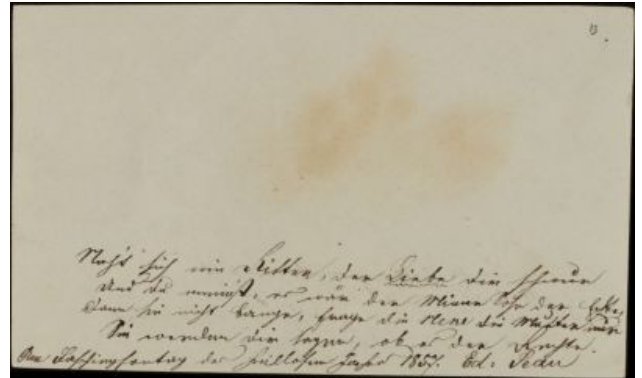 Naht sich ein Ritter, der Liebe dir schwur
Und du meinst, er wär der Minne Sohn der echte,
Dann sei nicht bange, frage die Mutter nur
Sie werden dir sagen, ob es der Rechte.
Am Faschingsonntag des heillosen Jahrs 1857. Ed.